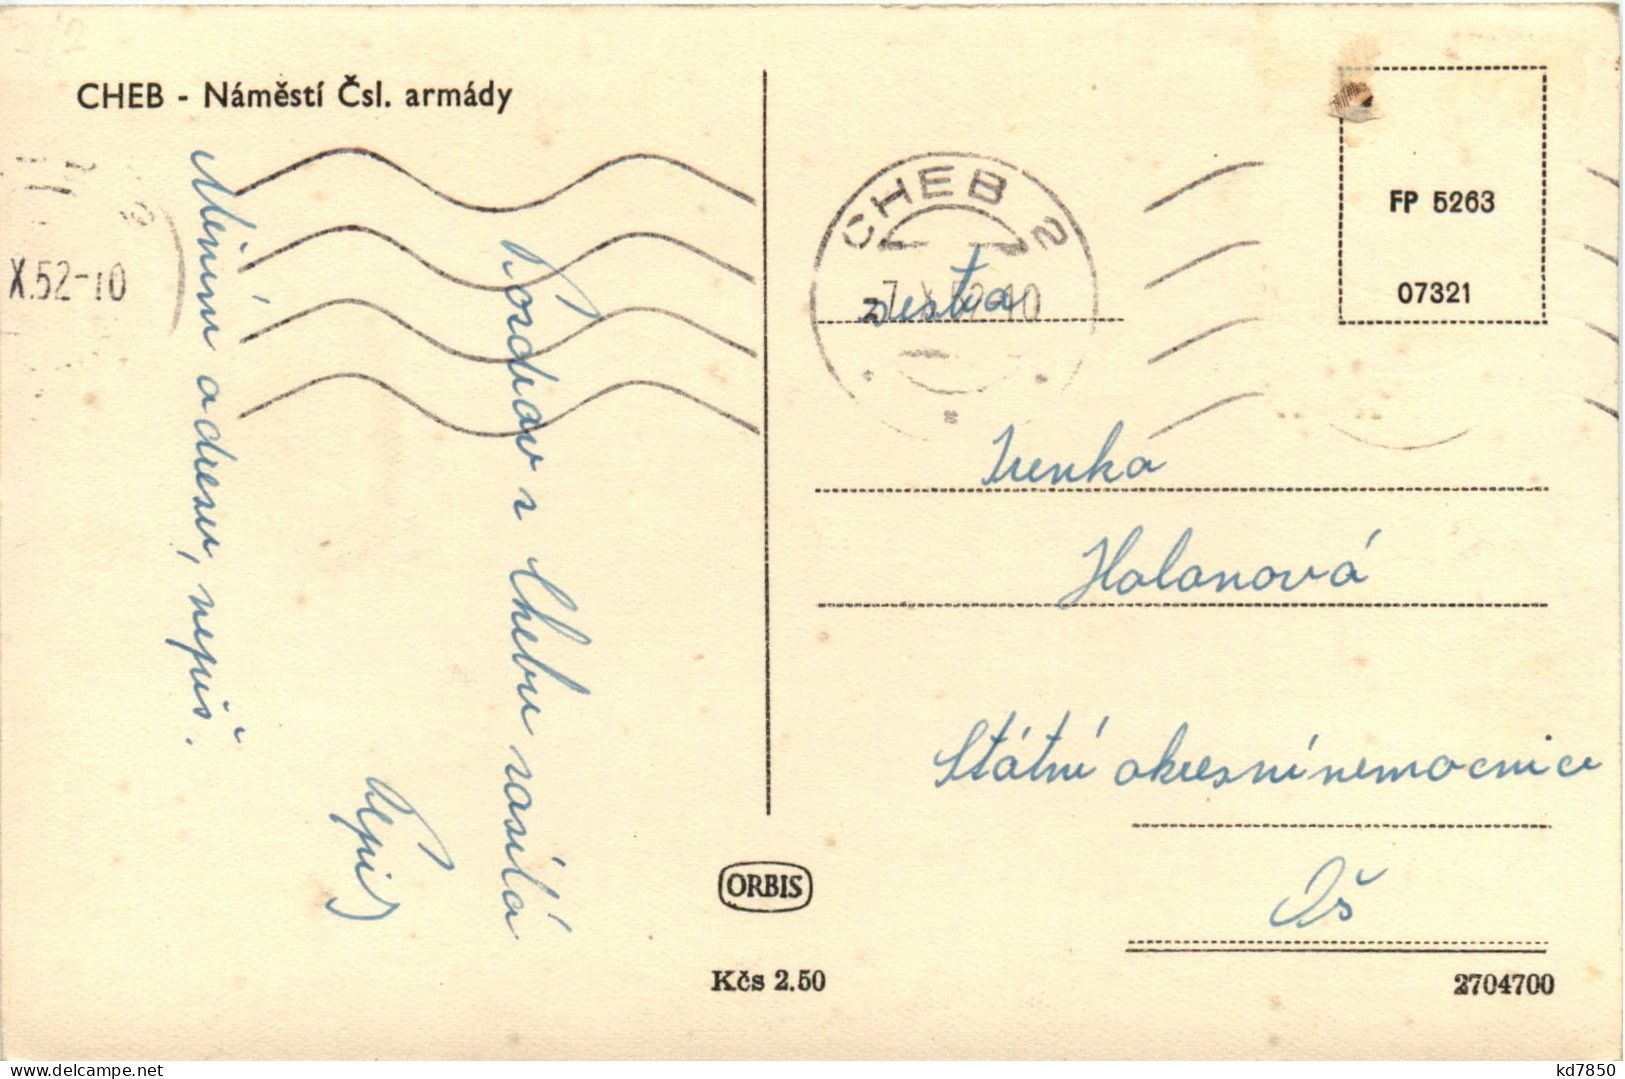 CHEB - Náměstí Čsl. armády
X.52-10
Pozdrav z Chebu zasílá
Pepík
Měním adresu, nepiš.
CHEB 2
7. X. 52-10
sestra
Irenka
Holanová
Státní okresní nemocnice
Aš
FP 5263
07321
ORBIS
Kčs 2.50
2704700
kd7850